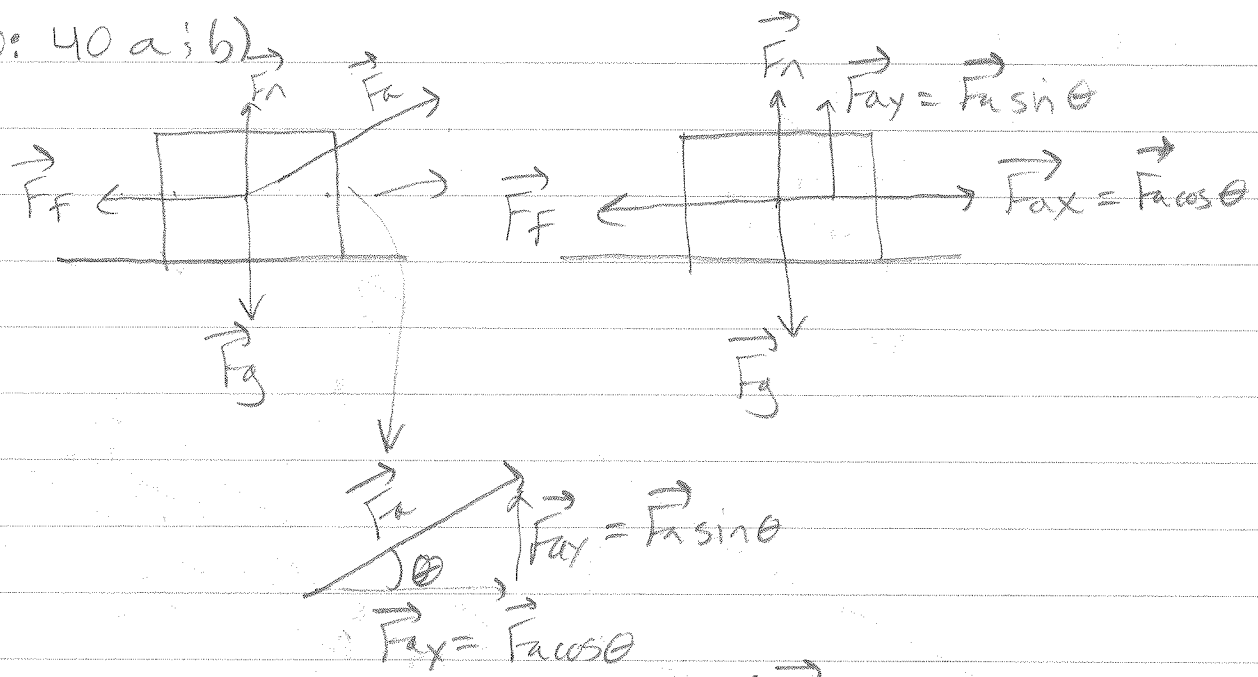 : 40 a; b)
Fn Fa Fn Fay = Fa sin θ
Ff Ff Fax = Fa cos θ
Fg Fg
Fa Fay = Fa sin θ
θ
Fax = Fa cos θ